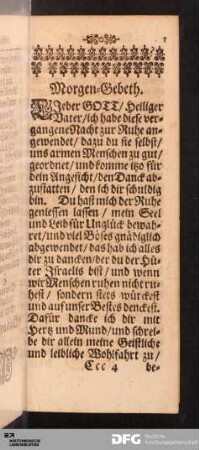 Morgen-Gebeth.
LJeber GOTT/ Heiliger
Vater/ ich habe diese ver-
gangene Nacht zur Ruhe an-
gewendet/ dazu du sie selbst/
uns armen Menschen zu gut/
geordnet/ und komme itzo für
dein Angesicht/ den Danck ab-
zustatten/ den ich dir schuldig
bin. Du hast mich der Ruhe
geniessen lassen/ mein Seel
und Leib für Unglück bewah-
ret/ und viel Böses gnädiglich
abgewendet/ das hab ich alles
dir zu dancken/ der du der Hü-
ter Jsraelis bist/ und wenn
wir Menschen ruhen nicht ru-
hest/ sondern stets würckest
und auf unser Bestes denckest.
Dafür dancke ich dir mit
Hertz und Mund/ und schrei-
be dir allein meine Geistliche
und leibliche Wohlfahrt zu/
Ccc 4 be-
DFG Deutsche
Forschungsgemeinschaft